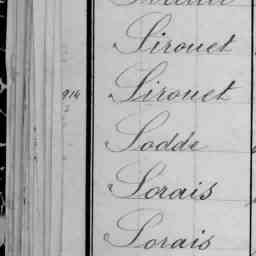 Sirouet
914 Sirouet
Sodde
Sorais
Sorais